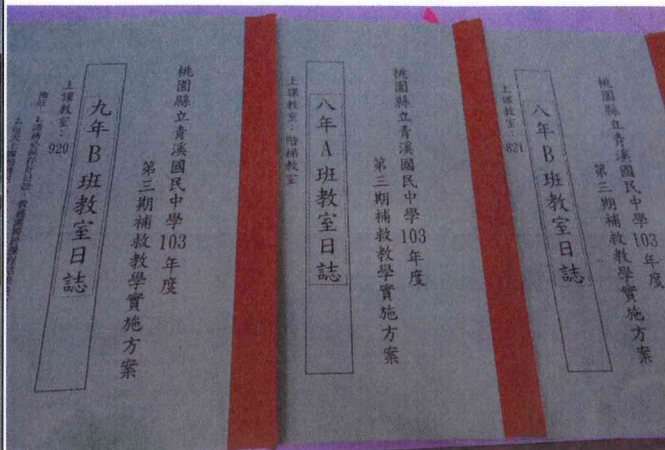 桃園縣立青溪國民中學103年度
第三期補救教學實施方案
八年B班教室日誌
上課教室：821
桃園縣立青溪國民中學103年度
第三期補救教學實施方案
八年A班教室日誌
上課教室：階梯教室
桃園縣立青溪國民中學103年度
第三期補救教學實施方案
九年B班教室日誌
上課教室：920